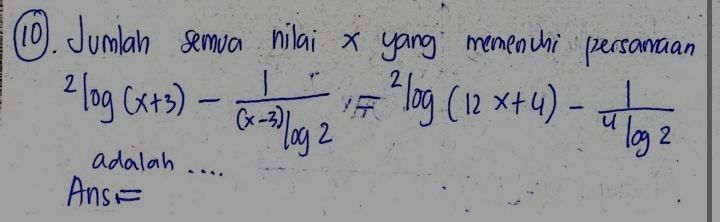 (10). Jumlah semua nilai x yang memenuhi persamaan
²log (x+3) − 1/(⁽ˣ⁻³⁾log 2) = ²log (12x+4) − 1/(⁴log 2)
adalah ....
Ans =